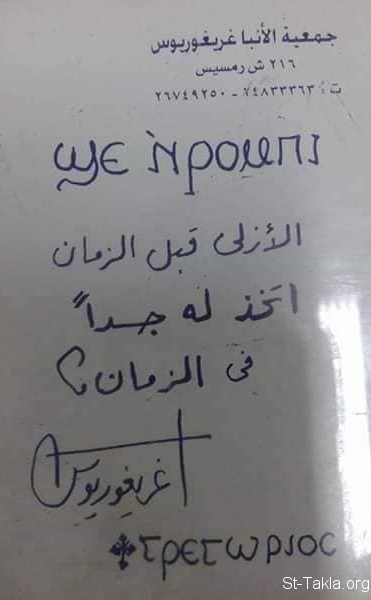 جمعية الأنبا غريغوريوس
٢١٦ ش رمسيس
ت : ٢٤٨٣٣٣٦٣ - ٢٦٧٤٩٢٥٠
ϣⲉ ⲛ̀ⲣⲟⲙⲡⲓ
الأزلى قبل الزمان
اتخذ له جسداً
فى الزمان
غريغوريوس
ⲅⲣⲉⲅⲱⲣⲓⲟⲥ
St-Takla.org